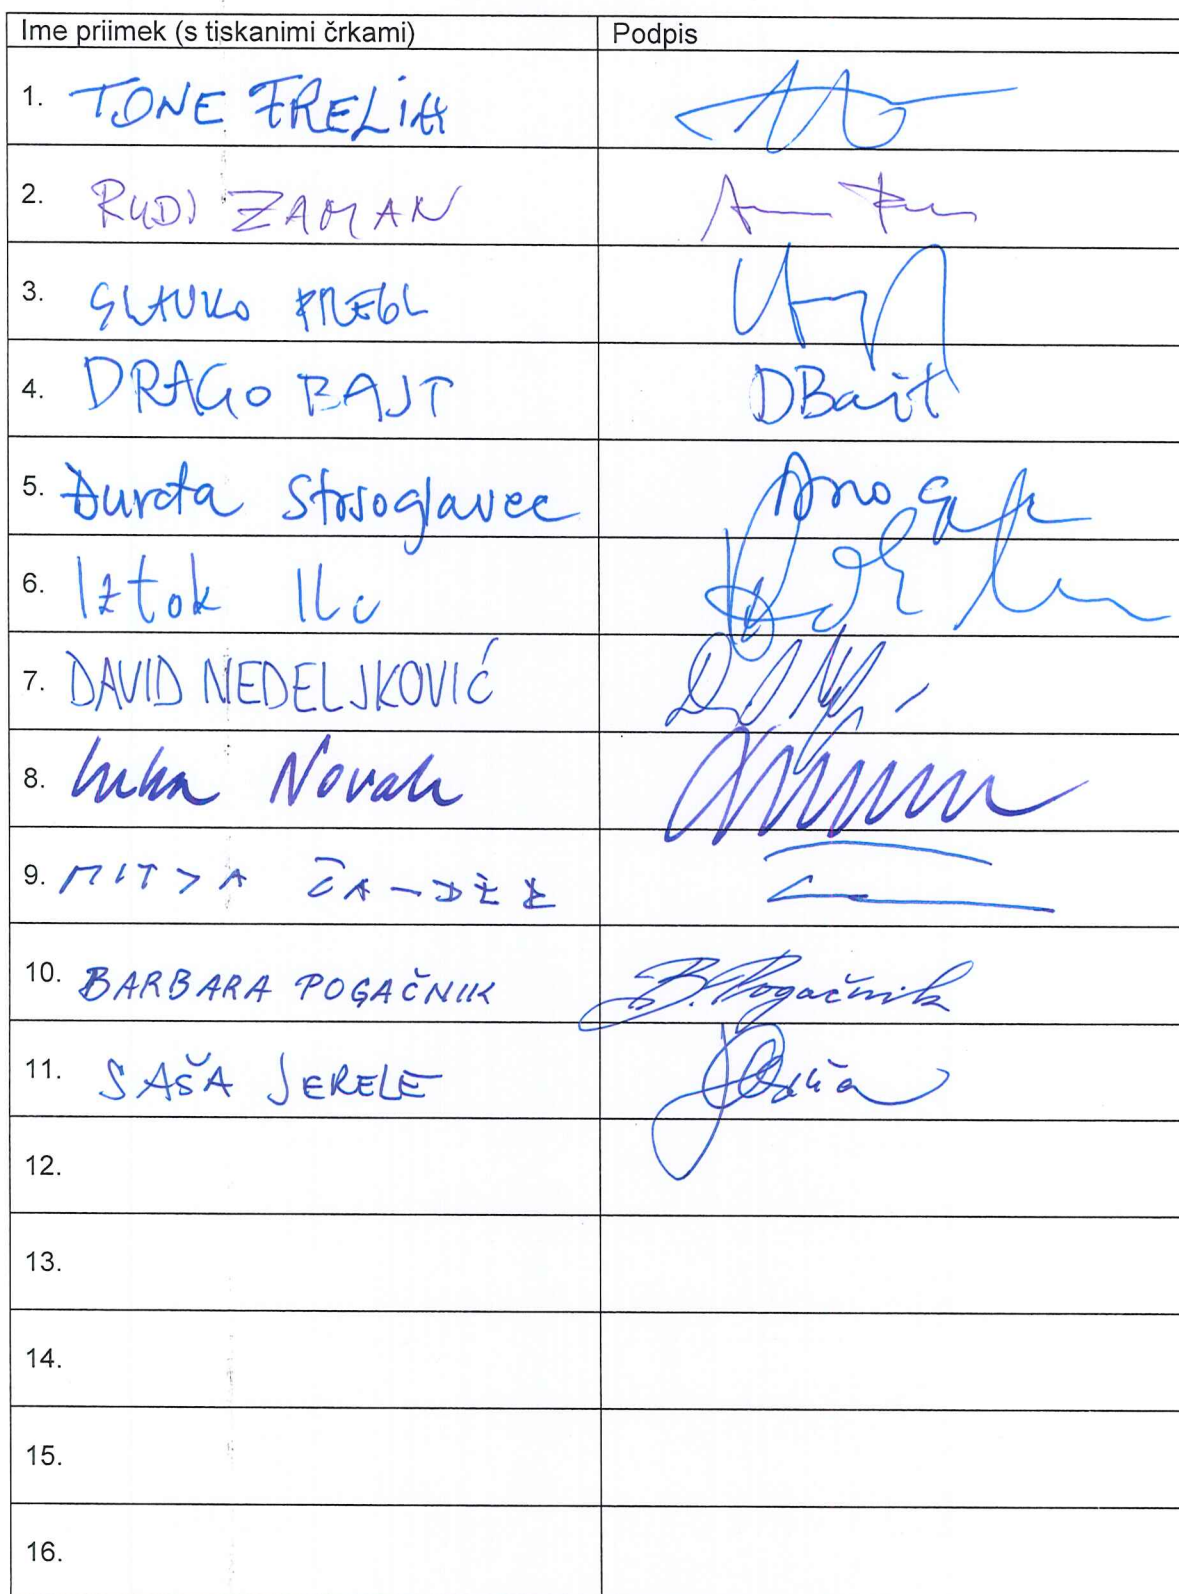 Ime priimek (s tiskanimi črkami) Podpis
1. TONE FRELIH
2. RUDI ZAMAN
3. SLAVKO PREGL
4. DRAGO BAJT DBajt
5. Đurđa Strsoglavec
6. Iztok Ilc
7. DAVID NEDELJKOVIĆ
8. Luka Novak
9. MITJA ČANDER
10. BARBARA POGAČNIK B. Pogačnik
11. SAŠA JERELE
12.
13.
14.
15.
16.